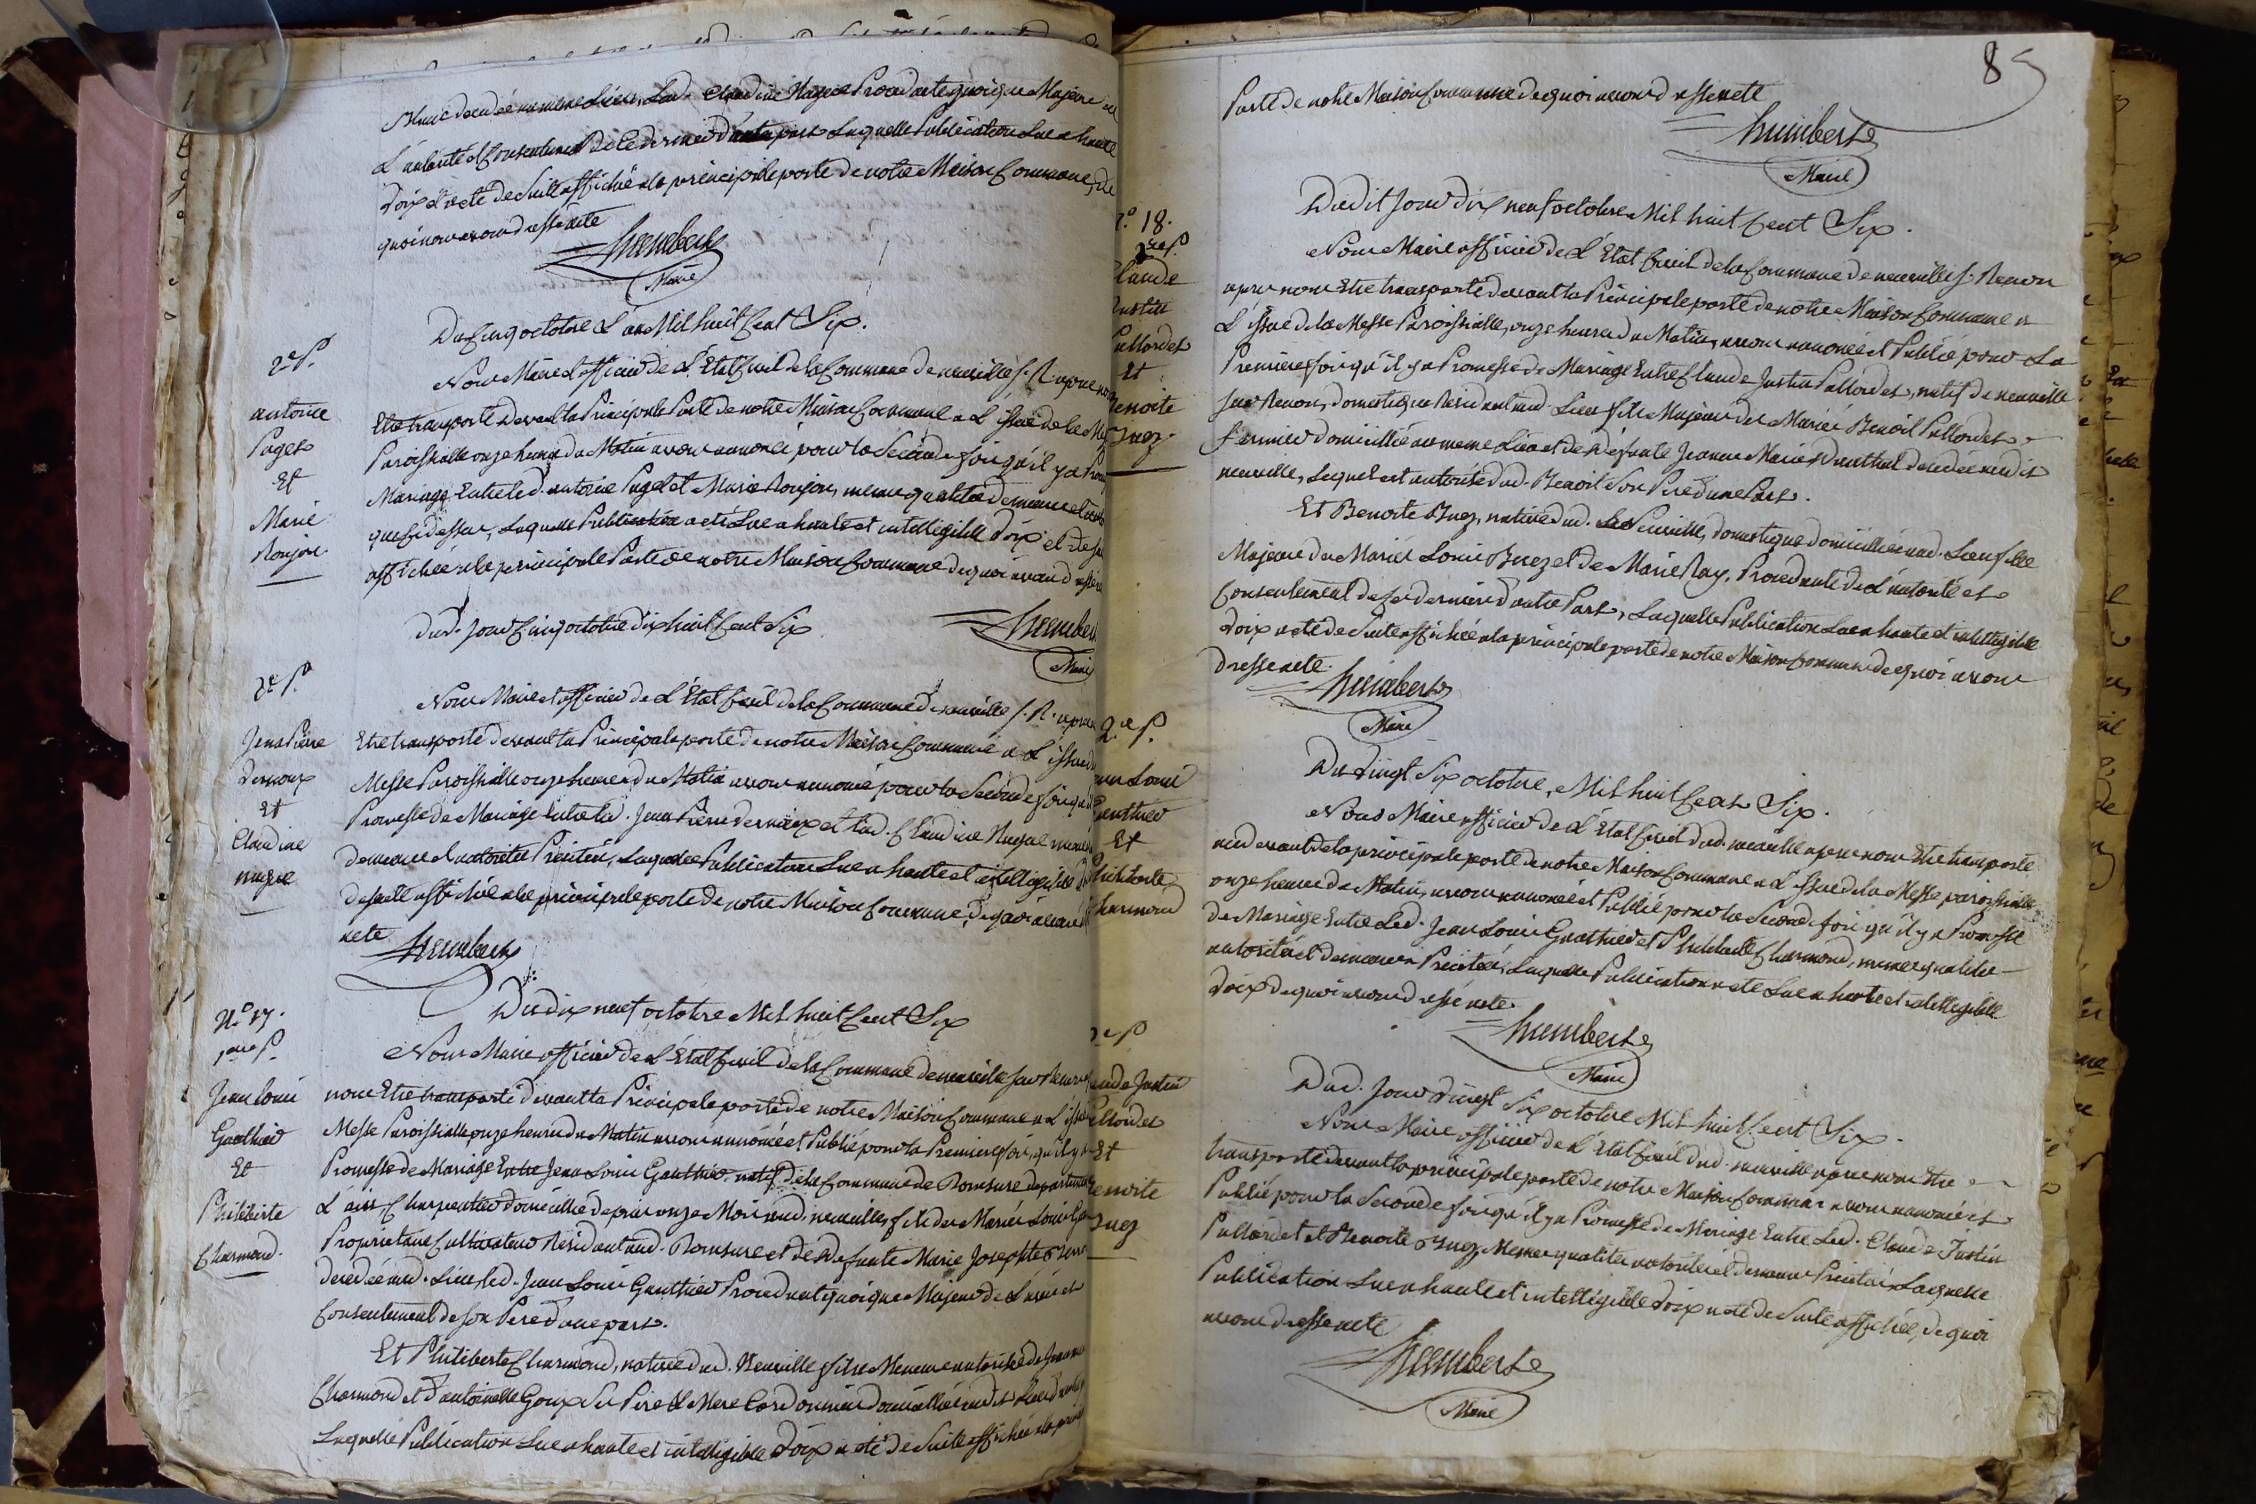 Claudine Nugue Procedante quoique Majeure de
L'autorité et Consentement de ce dernier d'autre part Laquelle Publication Lue a haute
Voix a eté de Suite affichée a la principale porte de notre Maison Commune, de
quoi nous avons dressé acte
Humbert
Maire
Du Cinq octobre L'an Mil huit Cent Six.
2e P.
antoine
Paget
Et
Marie
Roujon
Nous Maire et officier de L'Etat Civil de la Commune de neuville S. R. apres nous
Etre transporté devant la Principale Porte de notre Maison Commune a L'issue de la Messe
Paroissialle onze heures du Matin avons annoncé pour la Seconde fois qu'il y a
Mariage Entre led. antoine Paget et Marie Roujon, meme qualité demeure et
que cydessus, Laquelle Publication a eté Lue a haute et intelligible Voix et de
affichée a la principale Porte de notre Maison Commune de quoi avons dressé
Humbert
Maire
Dud. Jour Cinq octobre dix huit Cent Six
2e P.
Jean Pierre
Dernoux
Et
Claudine
nugue
Nous Maire et officier de L'Etat Civil de la Commune de neuville S. R. apres
Etre transporté devant la Principale porte de notre Maison Commune a L'issue de
Messe Paroissialle onze heures du Matin avons annoncé pour la Seconde fois qu'il
Promesse de Mariage Entre led. Jean Pierre dernoux et lad. Claudine Nugue
demeure et autorité Précitée, Laquelle Publication Lue a haute et intelligible
de suite affichée a la principale porte de notre Maison Commune, de quoi avons
acte
Humbert
Du dix neuf octobre Mil huit Cent Six
N.o 17.
1ere P.
Jean Loui
Gauthier
Et
Philiberte
Charmond.
Nous Maire officier de L'Etat Civil de la Commune de neuville Sur Renon
nous Etre transporté devant la Principale porte de notre Maison Commune a L'issue
Messe Paroissialle onze heures du Matin avons annoncé et Publié pour la Premiere fois, qu'il y a
Promesse de Mariage Entre Jean Loui Gauthier natif de la Commune de Domsure departement
L'ain, Charpentier domicillié depuis onze Mois aud. neuville, fils des Mariés Loui
Proprietaire Cultivateur Residant aud. Domsure et de Defunte Marie Josephte
decedée aud. Lieu, led. Jean Loui Gauthier Procedant quoique Majeur de L'avis et
Consentement de son Pere d'une part.
Et Philiberte Charmond, native dud. Neuville fille Mineure autorisée de
Charmond et d'antoinette Goux Ses Pere et Mere Cordonnier domicilliés audit Lieu
Laquelle Publication Lue a haute et intelligible Voix a eté de Suite affichée a la
85
Porte de notre Maison Commune de quoi avons dressé acte
Humbert
Maire
Dudit Jour dix neuf octobre Mil huit Cent Six.
18.
1ere P.
Claude
Justin
Pallordet
Et
Benoite
Buez
Nous Maire officier de L'Etat Civil de la Commune de neuville S. Renon
apres nous Etre transporté devant la Principale porte de notre Maison Commune a
L'issue de la Messe Paroissialle, onze heures du Matin, avons annoncé et Publié pour La
Premiere fois qu'il y a Promesse de Mariage Entre Claude Justin Pallordet, natif de neuville
Sur Renon, domestique Residant aud. Lieu fils Majeur des Mariés Benoit Pallordet
fermier domicillié au meme Lieu et de Defunte Jeanne Marie decedée audit
neuville, Lequel est autorisé dud. Benoit Son Pere d'une Part.
Et Benoite Buez, native dud. Neuville, domestique domicilliée aud. Lieu fille
Majeure des Mariés Louis Buez et de Marie Ray, Procedante de L'autorité et
Consentement de ces derniers d'autre Part, Laquelle Publication Lue a haute et intelligible
Voix a eté de Suite affichée a la principale porte de notre Maison Commune de quoi avons
dressé acte.
Humbert
Maire
Du Vingt Six octobre, Mil huit Cent Six.
2.e P.
Jean Loui
Gauthier
Et
Philiberte
Charmond
Nous Maire officier de L'Etat Civil dud. neuville apres nous Etre transporté
au devant de la principale porte de notre Maison Commune a L'issue de la Messe paroissialle
onze heures du Matin, avons annoncé et Publié pour la Seconde fois qu'il y a Promesse
de Mariage Entre Led. Jean Loui Gauthier et Philiberte Charmond, meme qualité
autorité et demeure Précitée, Laquelle Publication a eté Lue a haute et intelligible
Voix de quoi avons dressé acte.
Humbert
Maire
Dud. Jour Vingt Six octobre Mil huit Cent Six.
2e P
Claude Justin
Pallordet
Et
Benoite
Buez
Nous Maire officier de L'Etat Civil dud. neuville apres nous Etre
transporté devant la principale porte de notre Maison Commune avons annoncé et
Publié pour la Seconde fois qu'il y a Promesse de Mariage Entre Led. Claude Justin
Pallordet et Benoite Buez, Meme qualité autorité et demeure Précitée Laquelle
Publication Lue a haute et intelligible Voix a eté de Suite affichée, de quoi
avons dressé acte
Humbert
Maire